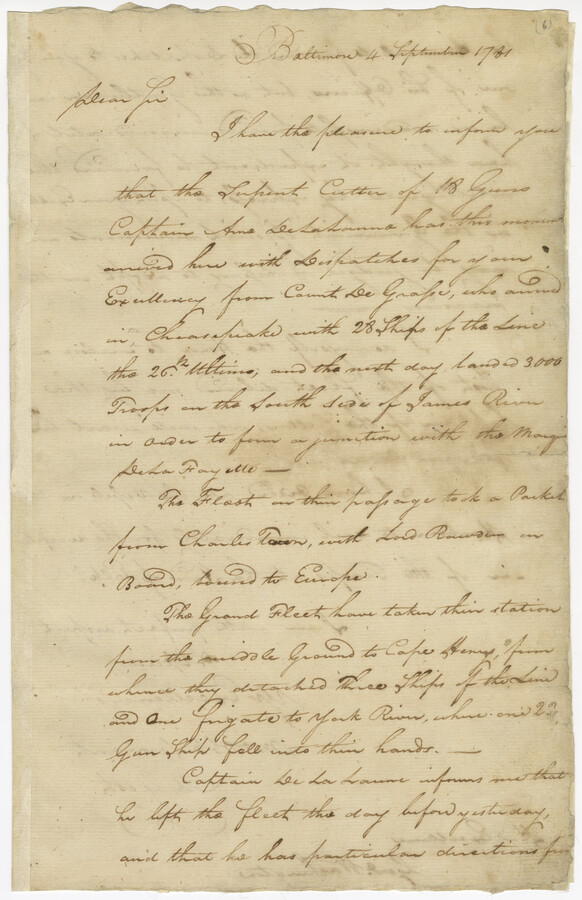 (6)
Baltimore 4 September 1781
Dear Sir
I have the pleasure to inform you
that the Serpent Cutter of 18 Guns
Captain Arne DeLahanne has this moment
arrived here with Dispatches for your
Excellency from Count De Grasse, who arrived
in, Cheasepeake with 28 Ships of the Line
the 26.th Ultimo, and the next day landed 3000
Troops on the South side of James River
in order to form a junction with the Marqi
DeLa Fayette —
The Fleet on thier passage took a Packet
from Charles Town, with Lord Rawden on
Board, bound to Europe.
The Grand Fleet have taken thier station
from the middle Ground to Cape Henry, from
whence they detached Three Ships of the Line
and One frigate to York River, where one 20
Gun Ship fell into thier hands. —
Captain De La Laune informs me that
he left the fleet the day before yesterday,
and that he has particular directions from